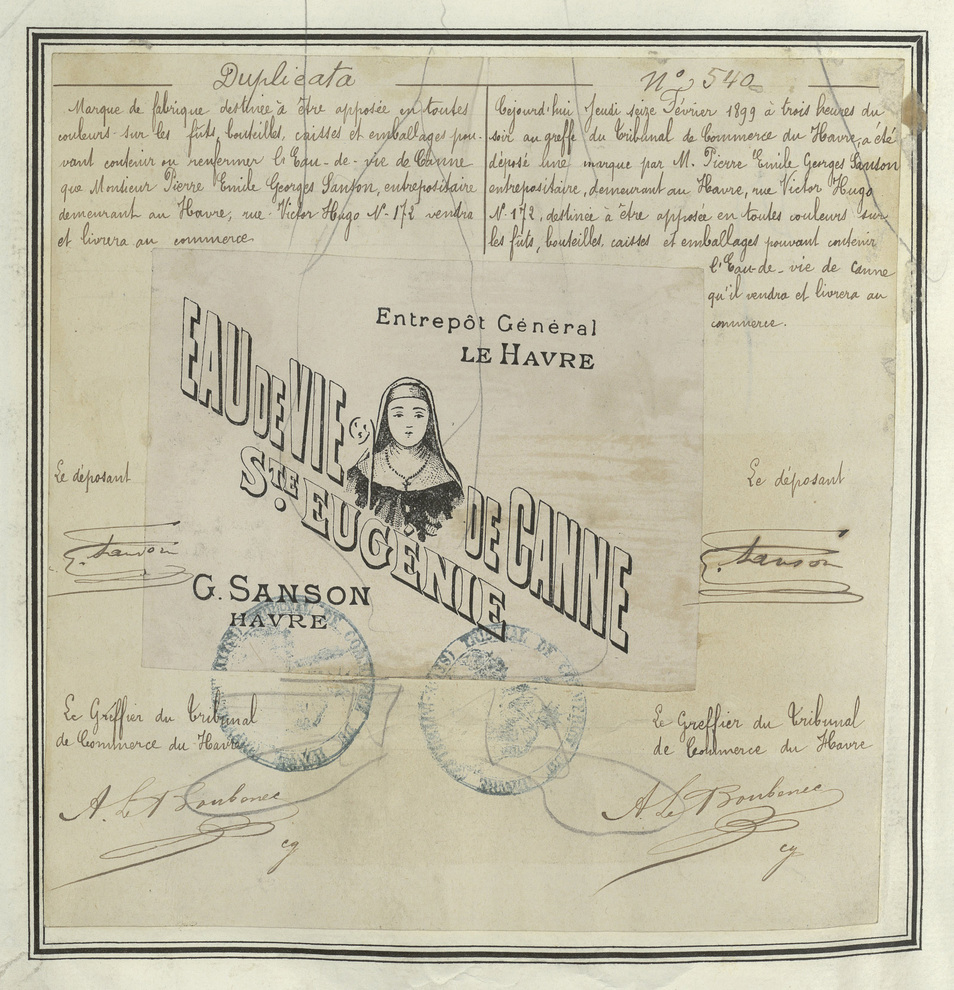 Duplicata
Marque de fabrique destinée à être apposée en toutes
couleurs sur les fûts, bouteilles, caisses et emballages pou-
vant contenir ou renfermer l'Eau-de-vie de Canne
que Monsieur Pierre Emile Georges Sanson, entrepositaire
demeurant au Havre, rue Victor Hugo N° 172 vendra
et livrera au commerce
N° 540
Cejourd'hui Jeudi seize Février 1899 à trois heures du
soir au greffe du Tribunal de Commerce du Havre, a été
déposé une marque par M. Pierre Emile Georges Sanson
entrepositaire, demeurant au Havre, rue Victor Hugo
N° 172, destinée à être apposée en toutes couleurs sur
les fûts, bouteilles, caisses et emballages pouvant contenir
l'Eau-de-vie de Canne
qu'il vendra et livrera au
commerce.
Entrepôt Général
LE HAVRE
EAU DE VIE DE CANNE
STE. EUGÉNIE
G. SANSON
HAVRE
Le déposant
G. Sanson
Le déposant
G. Sanson
Le Greffier du Tribunal
de Commerce du Havre
A. Le Boubenec
cg
Le Greffier du Tribunal
de Commerce du Havre
A. Le Boubenec
cg